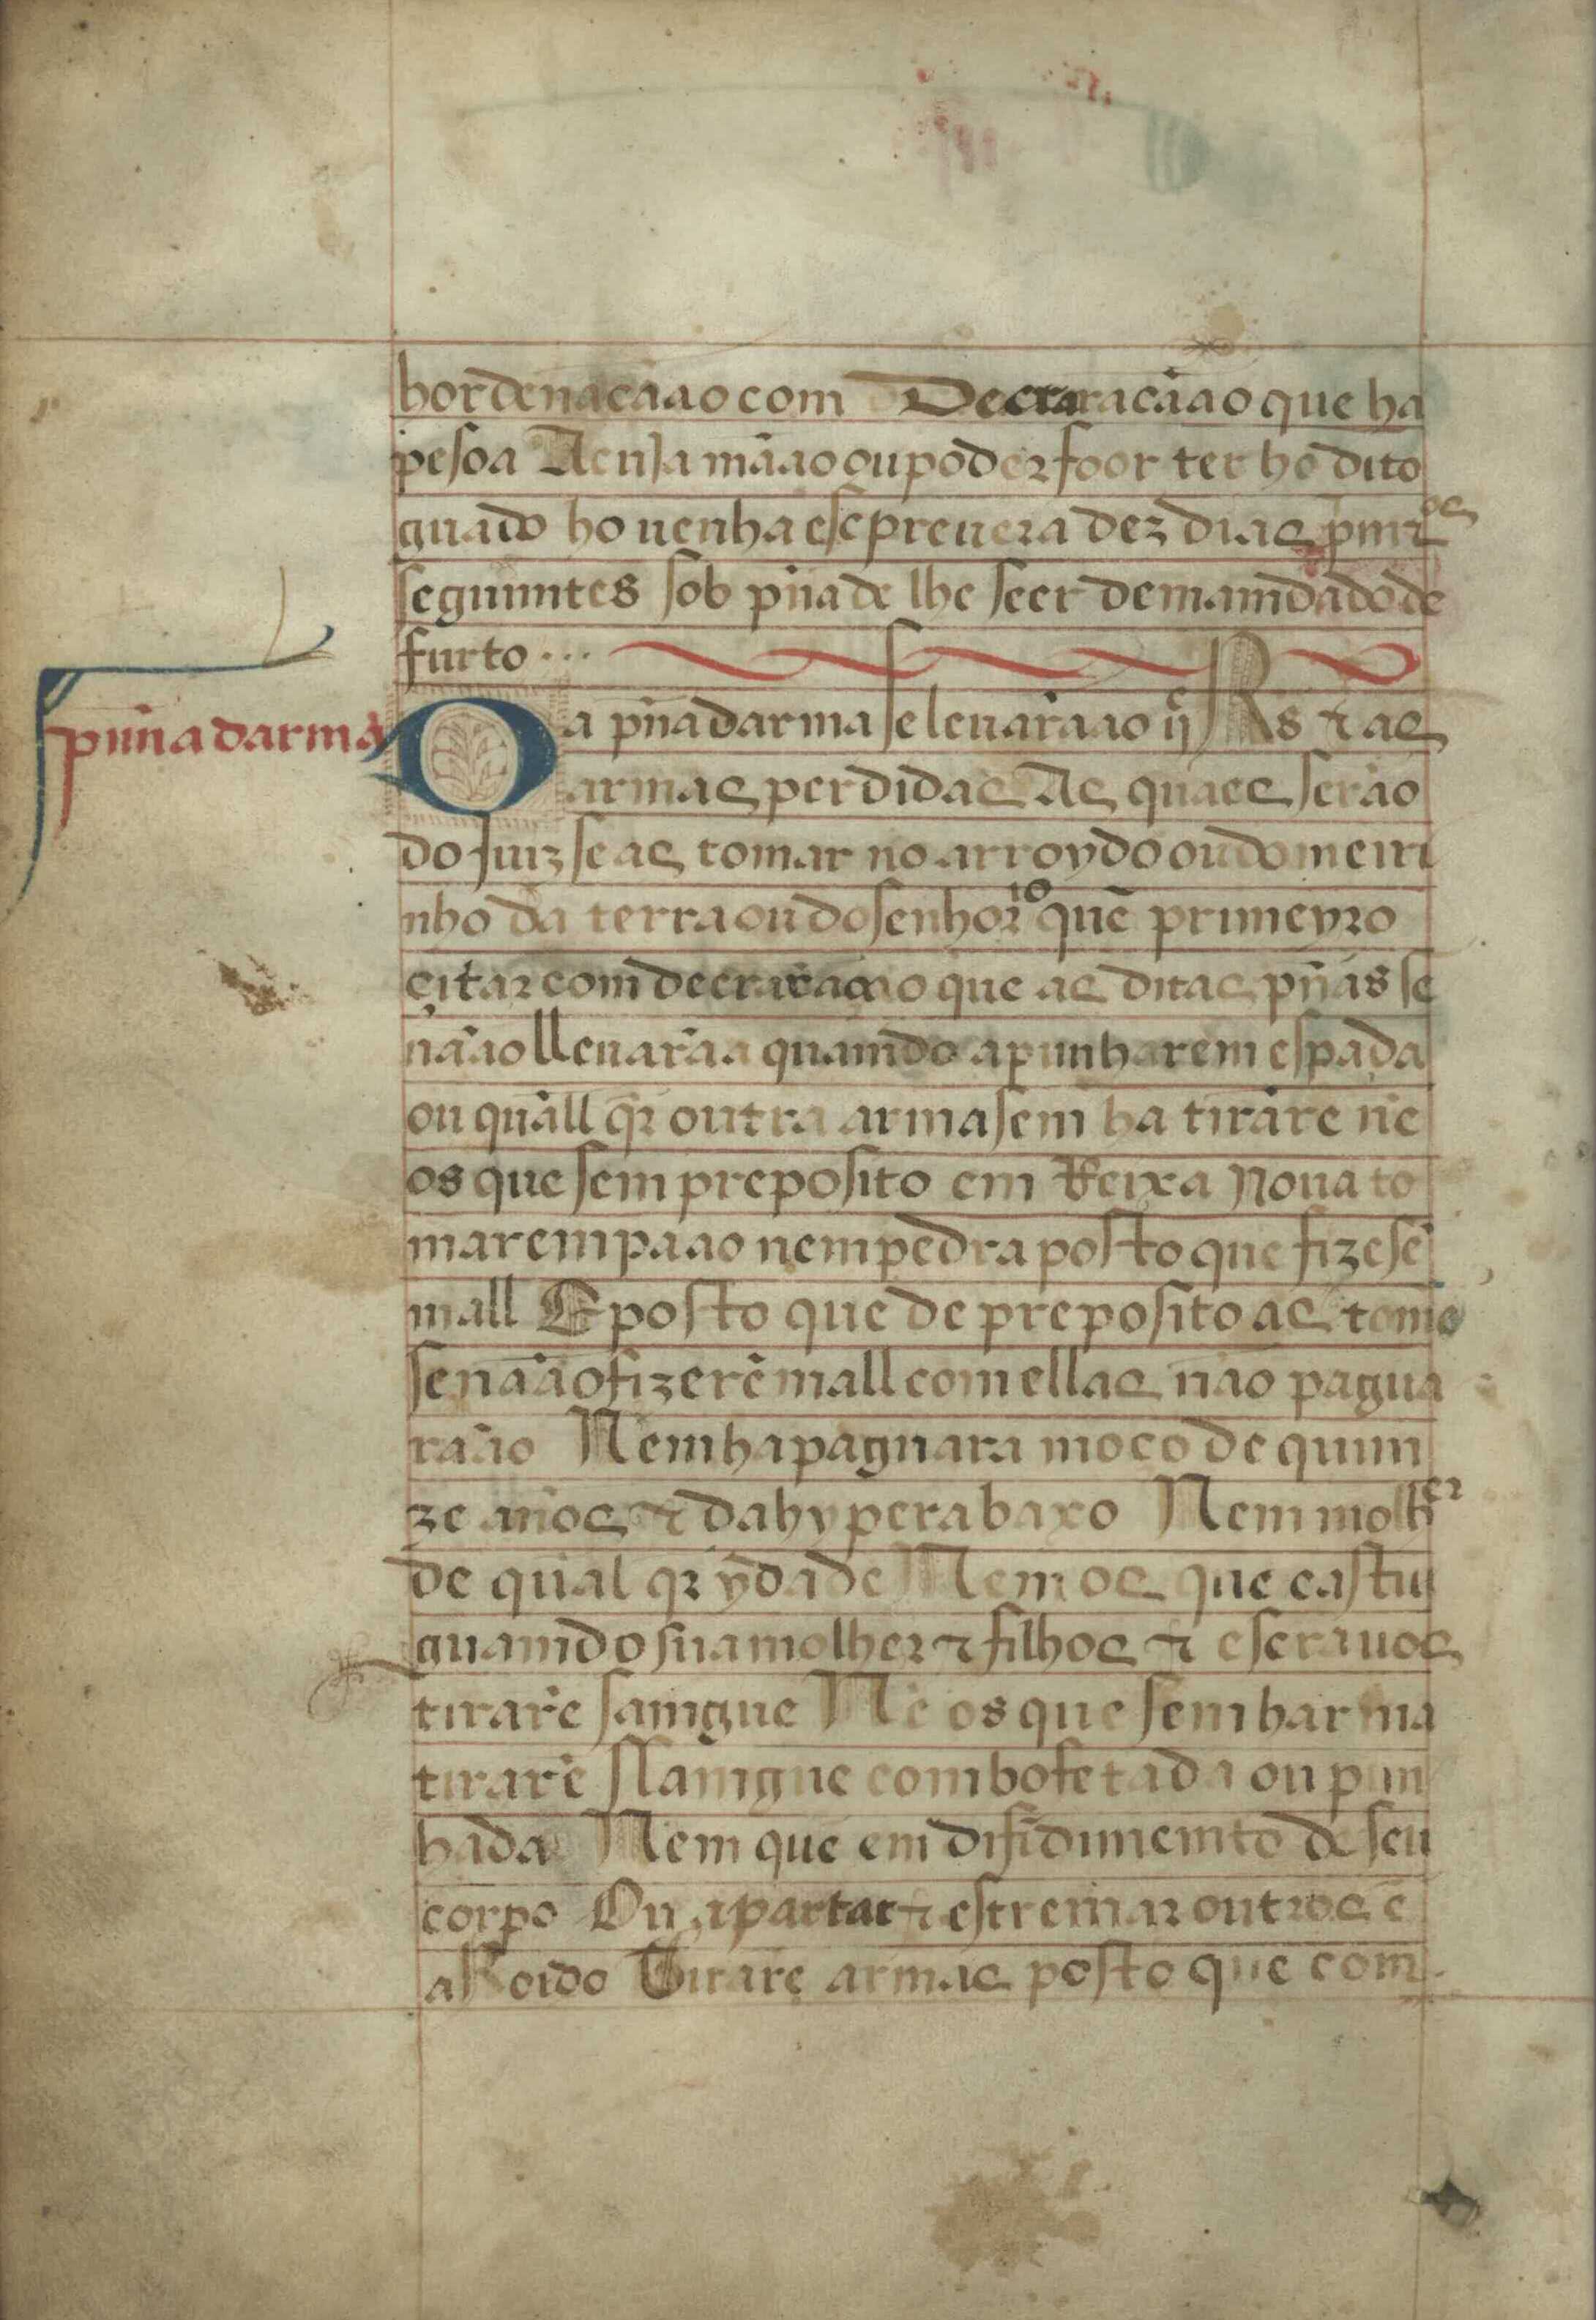 hordenacãao com Decraracãao que ha
pesoa A cuja mãao ou poder foor ter ho dito
guado ho venha escprever a dez dias pmr.os
seguimtes sob p̃na de lhe seer demamdado de
furto ...
pimadarma
Da p̃na darma se levarãao ij Rs & as
armas perdidas As quaees serão
do Juiz se as tomar no arroydo ou do meiri
nho da terra ou do senhorio que primeyro
çitar com decraraçao que as ditas p̃nas se
nãao llevarãa quamdo apunharem espada
ou quãll q̃r outra arma sem ha tirarẽ nẽ
os que sem preposito em Reixa nova to
marem paao nem pedra posto que fizesẽ
mall E posto que de preposito as tomẽ
se nãao fizerẽ mall com ellas não pagua
rãao Nem ha paguara moço de quim
ze anos & dahy pera baxo Nem molher
de qual q̃r ydade Nem os que casti
guamdo sua molher & filhos & escravos
tirarẽ samgue Nẽ os que sem harma
tirarẽ sãmgue com bofetada ou pun
hada Nem que em difidimemto de seu
corpo Ou apartar & estremar outros ẽ
aRoido Tirarẽ armas posto que com